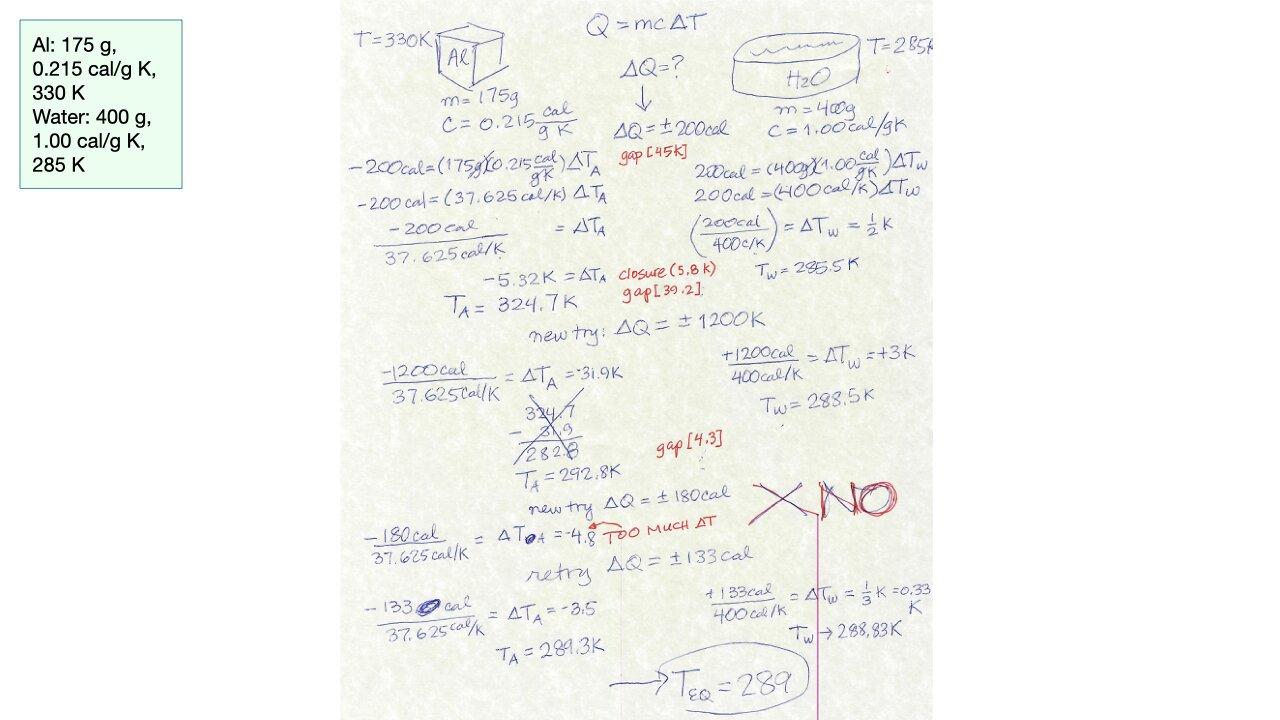 Al: 175 g,
0.215 cal/g K,
330 K
Water: 400 g,
1.00 cal/g K,
285 K
Q = mcΔT
T=330K
Al
m= 175g
C = 0.215 cal/gK
ΔQ=?
↓
ΔQ = ±200cal
gap [45K]
T=285K
H2O
m = 400g
C = 1.00 cal/gK
-200cal=(175g)(0.215 cal/gK)ΔTA
-200 cal= (37.625 cal/K) ΔTA
-200 cal / 37.625 cal/K = ΔTA
-5.32K = ΔTA
TA = 324.7K
200cal = (400g)(1.00 cal/gK)ΔTW
200cal =(400 cal/K)ΔTW
(200cal / 400 c/K) = ΔTW = 1/2 K
TW = 285.5K
closure (5.8K)
gap [39.2]
new try: ΔQ = ±1200K
-1200cal / 37.625 cal/K = ΔTA = -31.9K
324.7
- 31.9
282.8
TA = 292.8K
+1200cal / 400cal/K = ΔTW = +3K
TW = 288.5K
gap [4.3]
new try ΔQ = ±180cal
X NO
-180cal / 37.625 cal/K = ΔTA = -4.8 TOO MUCH ΔT
retry ΔQ = ±133 cal
-133 cal / 37.625 cal/K = ΔTA = -3.5
TA = 289.3K
+133cal / 400 cal/K = ΔTW = 1/3 K = 0.33 K
TW → 288.83K
→ TEQ = 289